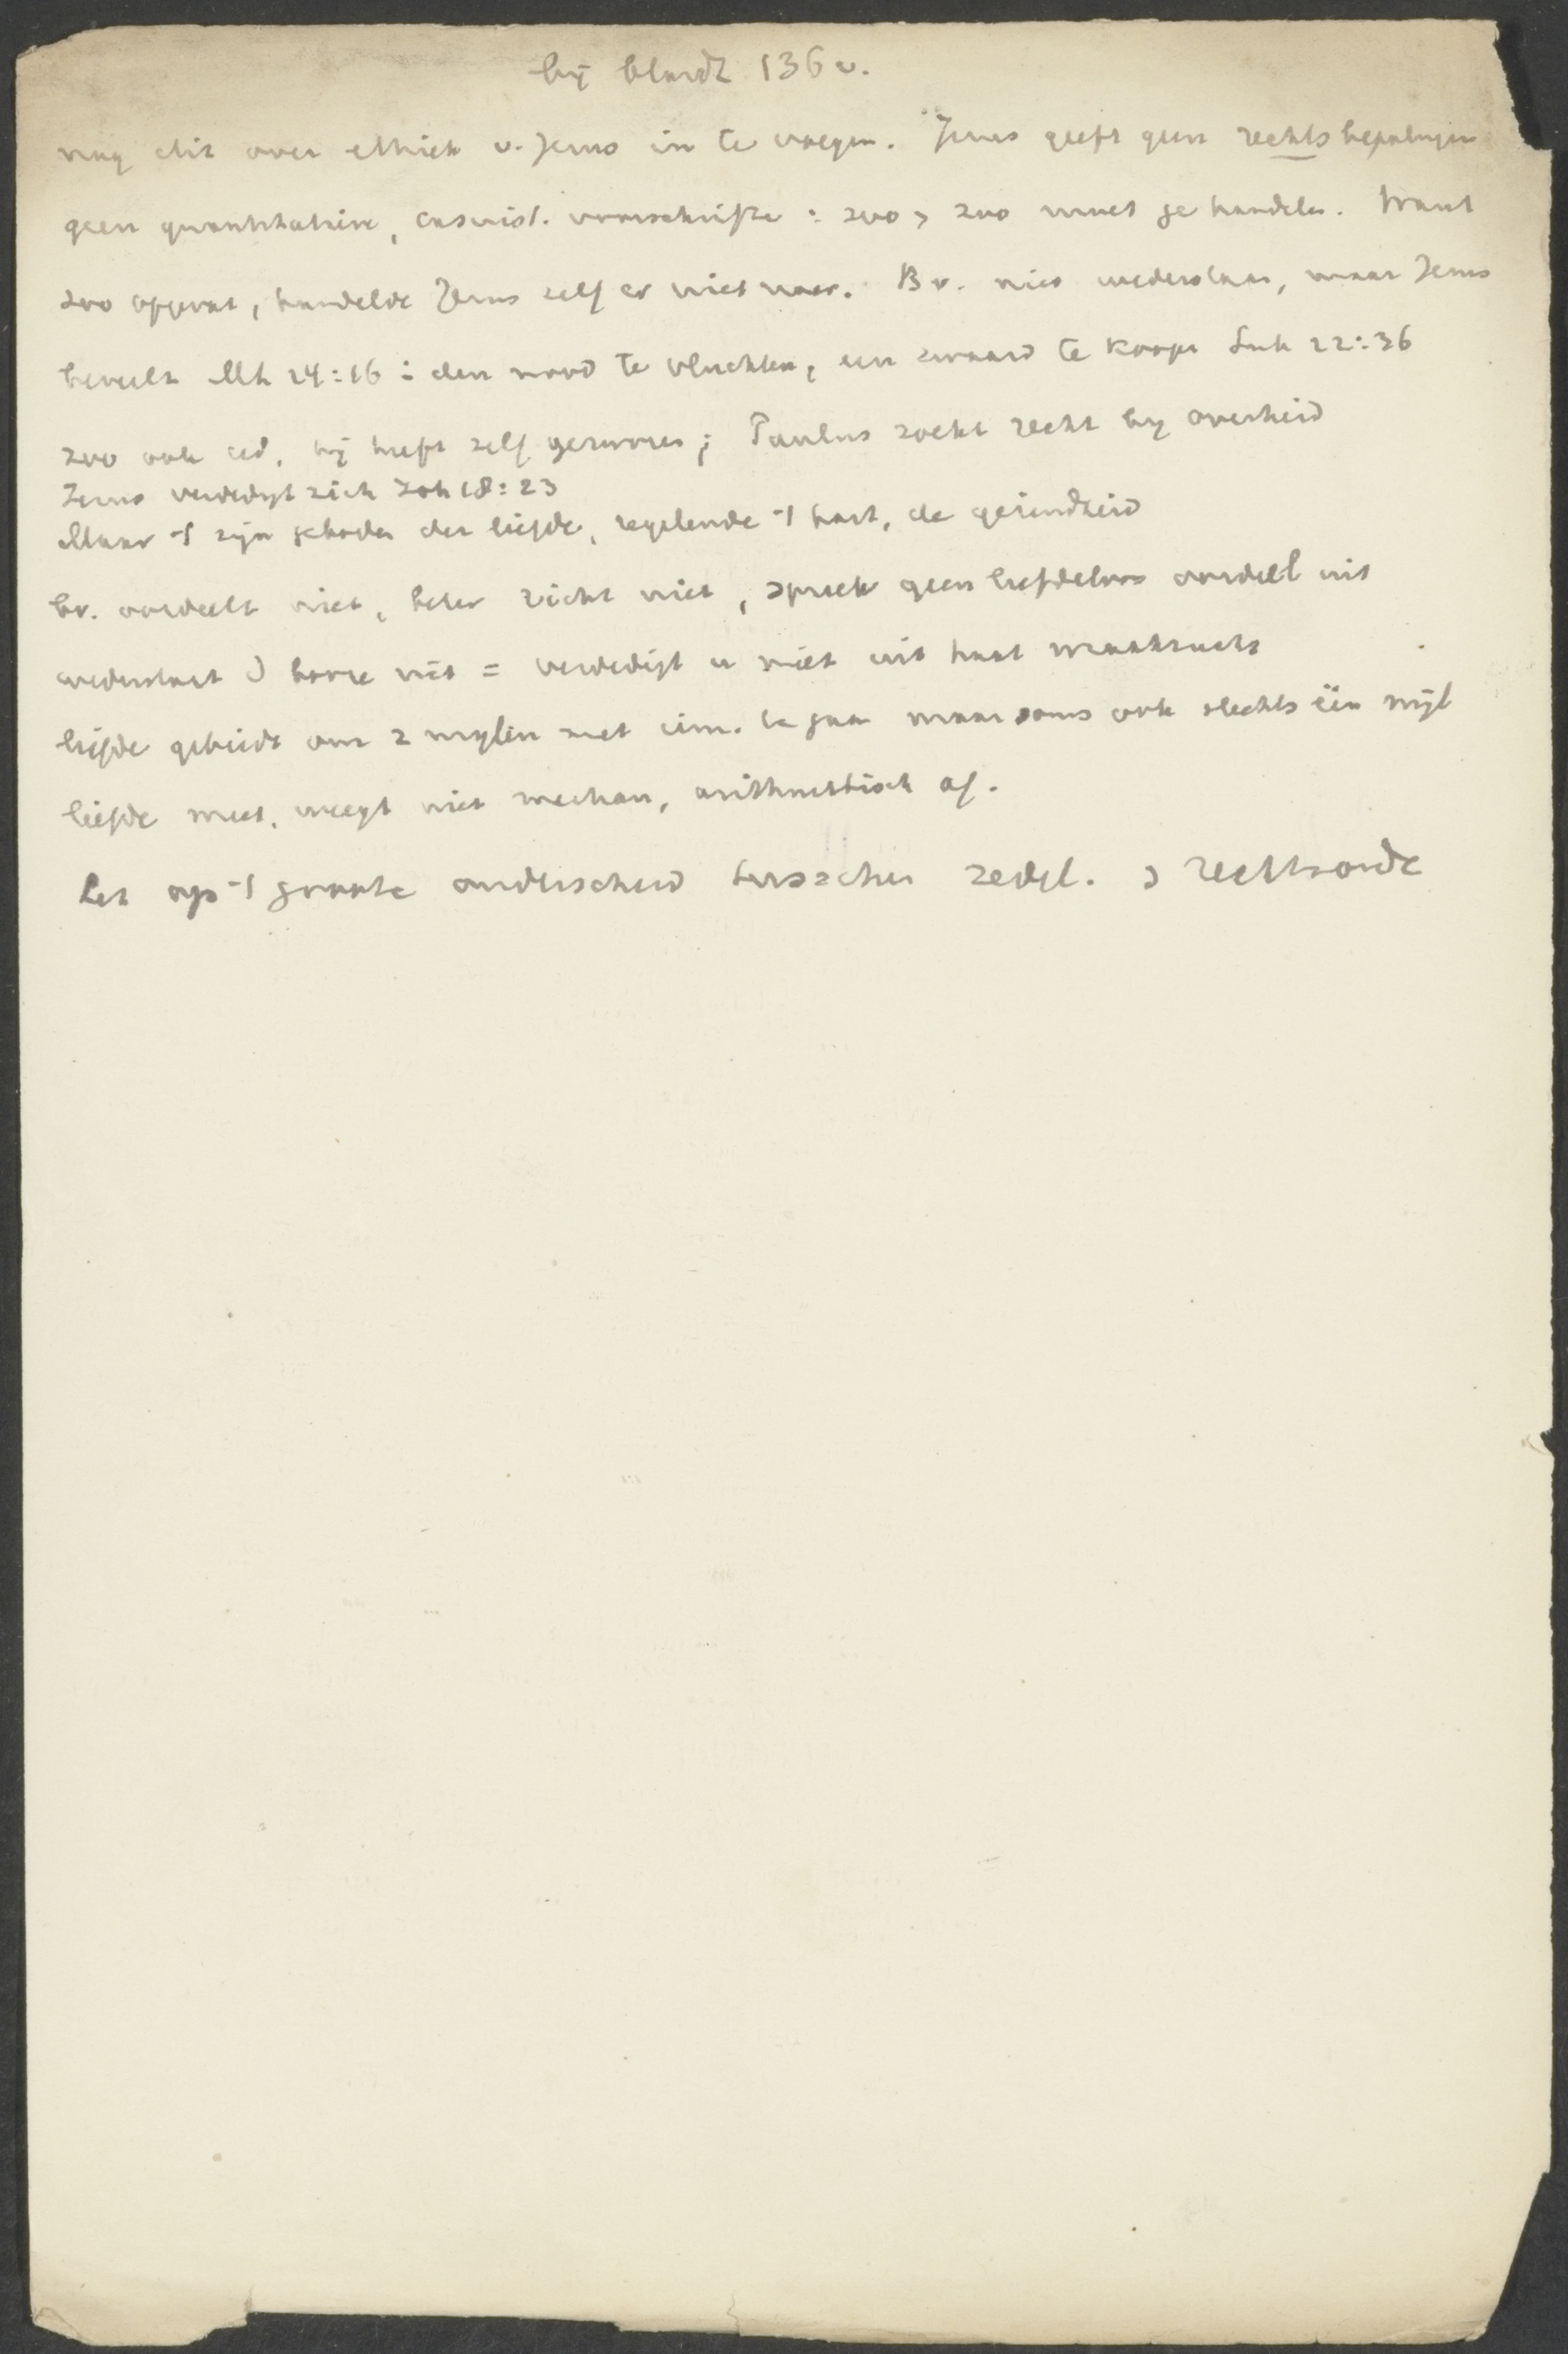 bij bladz 136 v.
nog dit over ethiek v. Jezus in te voegen. Jezus geeft geen rechtsbepalingen
geen quantitatieve, casuist. voorschriften : zoo > zoo moet ge handelen. Want
zoo opgevat, handelde Jezus zelf er niet naar. Bv. niet wederstaan, maar Jezus
beveelt Mt 24:16 : den nood te vluchten, een zwaard te koopen Luk 22:36
zoo ook eed, hij heeft zelf gezworen; Paulus zoekt recht bij overheid
Jezus verdedigt zich Joh 18:23
Maar 't zijn geboden der liefde, regelende 't hart, de gezindheid
bv. oordeelt niet, beter richt niet, spreek geen liefdeloos oordeel uit
wederstaat d booze niet = verdedigt u niet uit haat wraakzucht
liefde gebiedt om 2 mijlen met iem. te gaan maar soms ook slechts één mijl
liefde meet, weegt niet mechan, arithmetisch af.
Let op 't groote onderscheid tusschen zedel. > rechtsorde